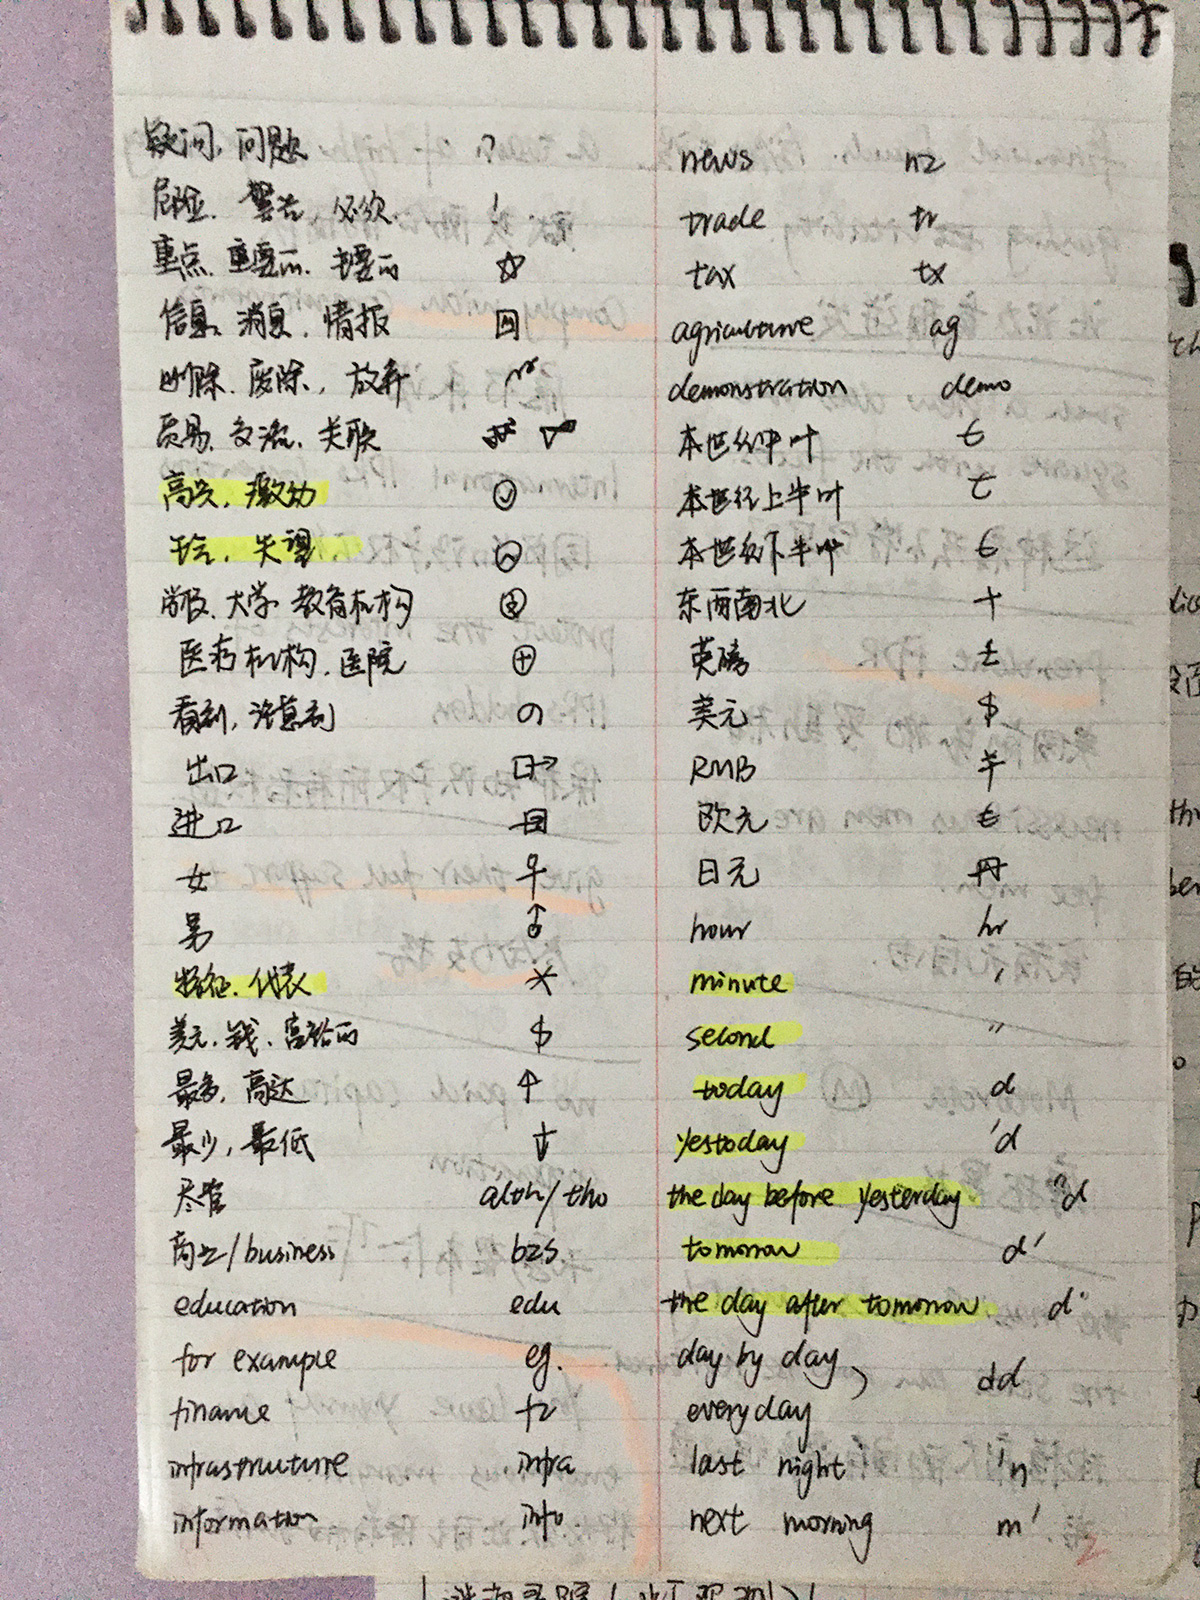 疑问、问题 ?
危险、警告、必须 !
重点、重要的、主要的 ☆
信息、消息、情报
删除、废除、放弃
贸易、交流、关联
高兴、激动
失望
学校、大学 教育机构
医疗机构、医院 ⊕
看到、注意到
出口 口→
进口
女 ♀
男 ♂
特征、代表 *
美元、钱、富裕的 $
最多、高达 ↑
最少,最低 ↓
尽管 alth/tho
商业/business bzs
education edu
for example eg.
finance fz
infrastructure infra
information info
news nz
trade tr
tax tx
agriculture ag
demonstration demo
本世纪中叶
本世纪上半叶
本世纪下半叶
东西南北 十
英镑 £
美元 $
RMB
欧元 €
日元
hour hr
minute ′
second ″
today d
yestoday 'd
the day before yesterday "d
tomorrow d'
the day after tomorrow
day by day,
everyday dd
last night 'n
next morning m'
2